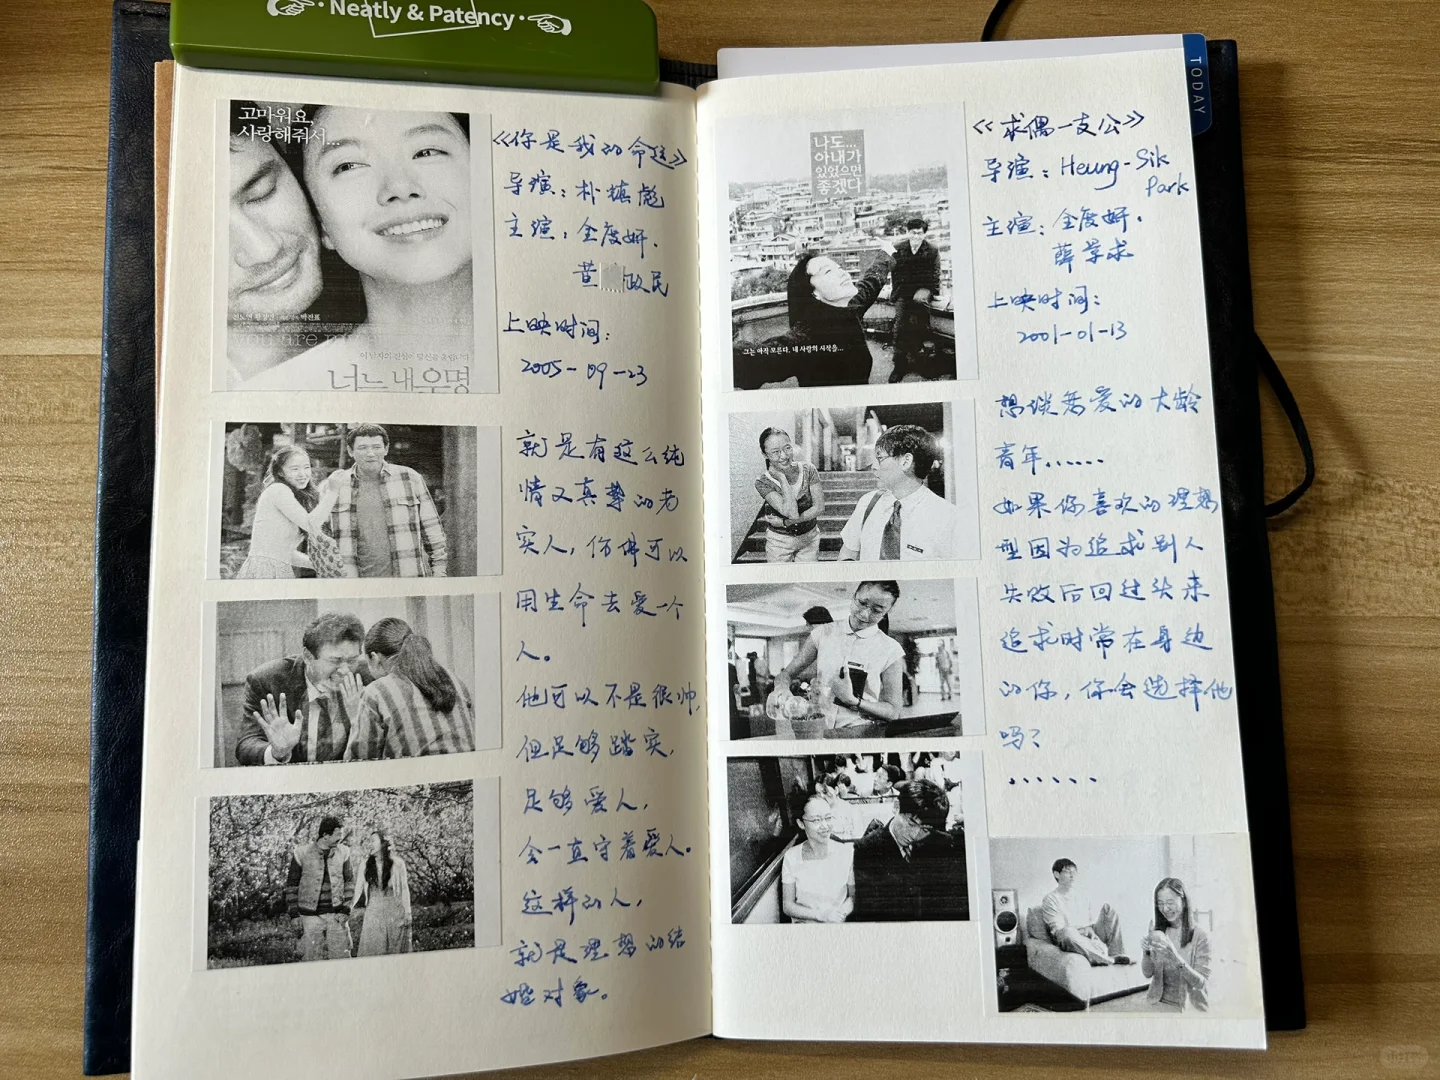 Neatly & Patency
TODAY
고마워요,
사랑해줘서...
you are my
너는 내 운명
《你是我的命运》
导演：朴镇彪
主演：全度妍.
黄政民
上映时间：
2005-09-23
就是有这么纯
情又真挚的老
实人，仿佛可以
用生命去爱一个
人。
他可以不是很帅，
但足够踏实，
足够爱人，
会一直守着爱人。
这样的人，
就是理想的结
婚对象。
나도...
아내가
있었으면
좋겠다
그는 아직 모른다. 내 사랑의 시작을...
《求偶一支公》
导演：Heung-Sik
Park
主演：全度妍.
薛景求
上映时间：
2001-01-13
想谈恋爱的大龄
青年......
如果你喜欢的理想
型因为追求别人
失败后回过头来
追求时常在身边
的你，你会选择他
吗？
......